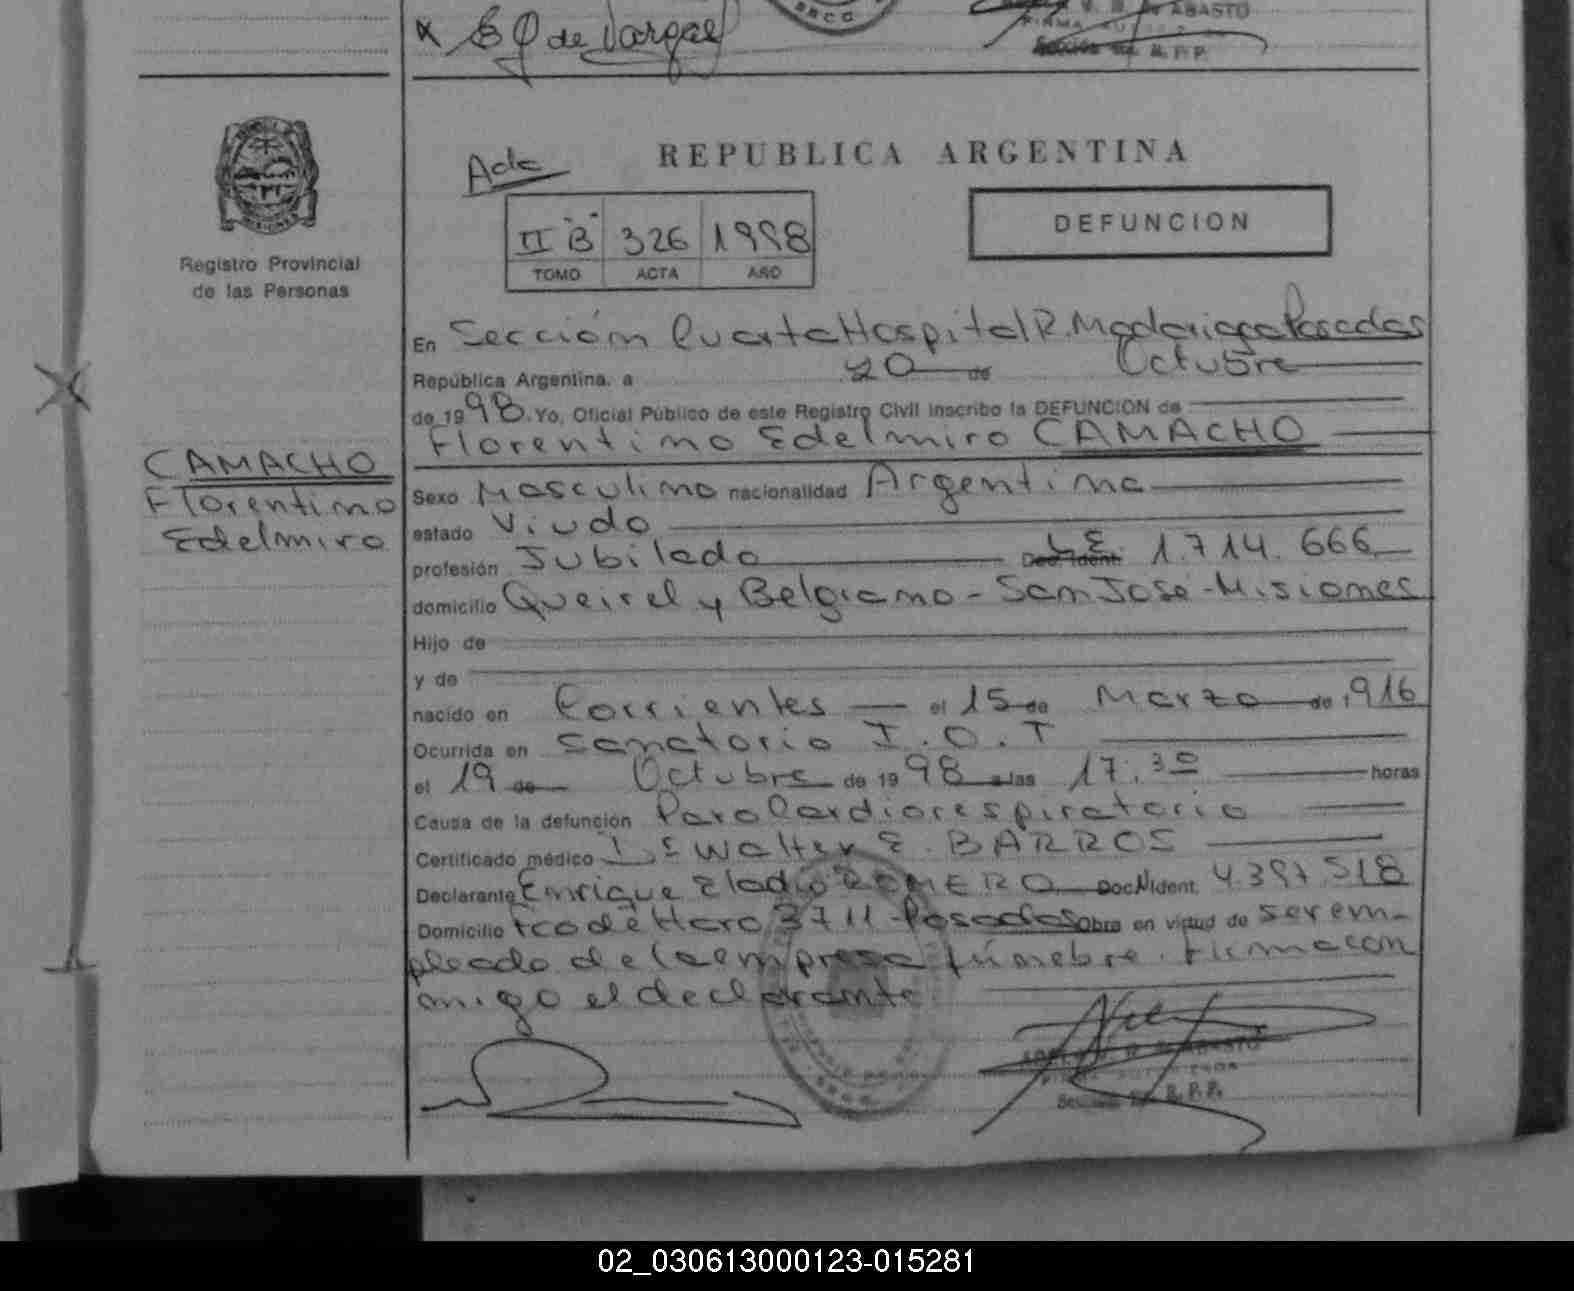 de Vargas
ABASTO
FIRMA
R.P.P.
Registro Provincial
de las Personas
CAMACHO
Florentino
Edelmiro
REPUBLICA ARGENTINA
II "B" 326 1998
TOMO ACTA AÑO
DEFUNCION
En Sección Cuarta Hospital R. Madariaga Posadas
República Argentina, a 20 de Octubre
de 1998. Yo, Oficial Público de este Registro Civil inscribo la DEFUNCION de
Florentino Edelmiro CAMACHO
Sexo Masculino nacionalidad Argentina
estado Viudo
profesión Jubilado Doc. Ident. L.E. 1.714.666
domicilio Queirel y Belgrano - San Jose - Misiones
Hijo de
y de
nacido en Corrientes el 15 de Marzo de 1916
Ocurrida en Sanatorio I.O.T
el 19 de Octubre de 1998 a las 17:30 horas
Causa de la defunción Paro Cardiorespiratorio
Certificado médico Dr Walter E. BARROS
Declarante Enrique Eladio ROMERO Doc. Ident. 4.397.518
Domicilio Fco de Haro 3711 - Posadas Obra en virtud de ser em-
pleado de la empresa fúnebre. Firma con
migo el declarante
ABASTO
R.P.P.
02_030613000123-015281